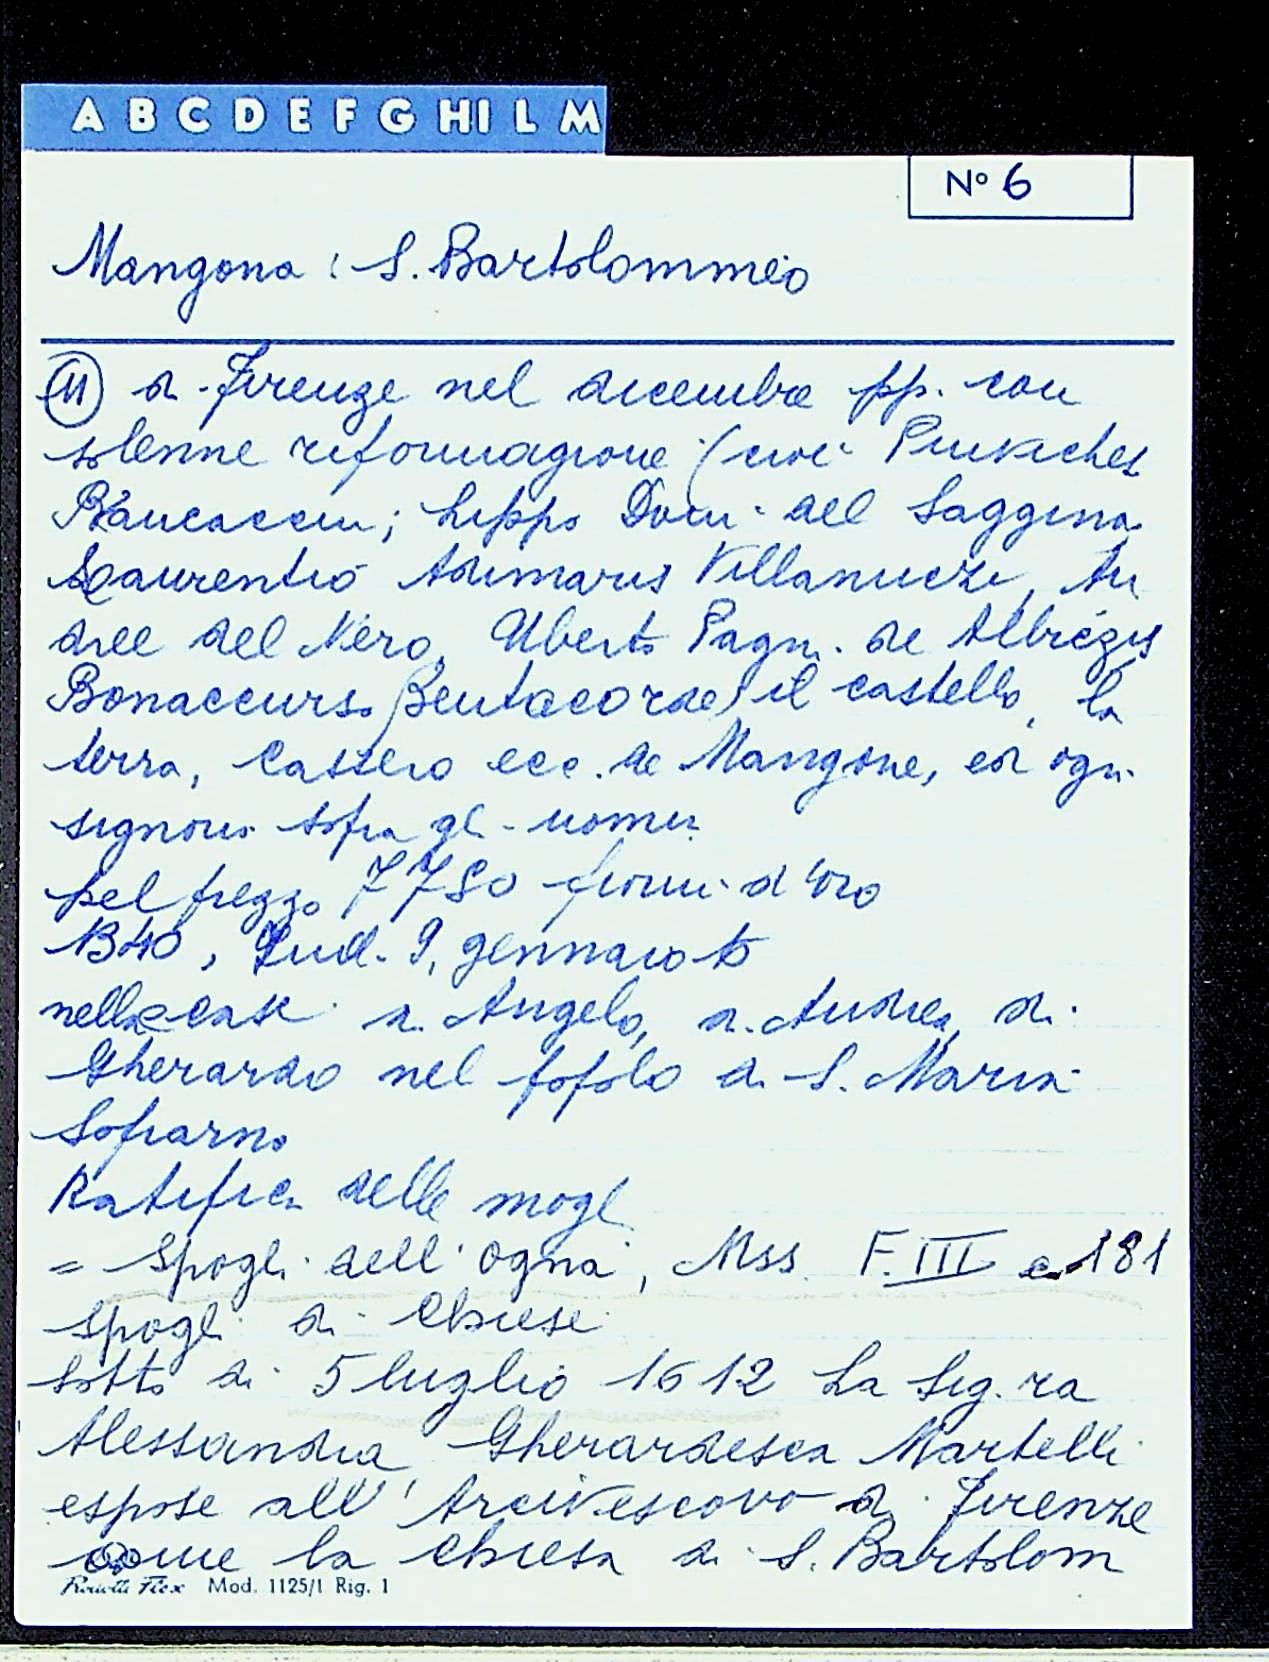 A B C D E F G HI L M
Nº 6
Mangona : S. Bartolommeo
11 di Firenze nel dicembre pp. con
solenne riformagione (cioè
Brancaccii; Lippo Dom. del Saggina
Laurentio Adimaris Villanuzzi, An
dree del Nero, Uberto Pagn. de Albizzis
Bonaccurso Bentacorde) il castello, la
terra, Cassero ecc. de Mangone, col ogni
signoria sopra gli uomini
pel prezzo 7780 fiorini d'oro
1340, Ind. 9, gennaio 15
nella case di Angelo, di Andrea, di
Gherardo nel popolo di S. Maria
Soprarno
Ratifica delle mogli
= Spogli dell'Ogna, Mss. F. III c. 181
Spogli di Chiese
Sotto di 5 luglio 1612 La Sig.ra
Alessandra Gherardesca Martelli
espose all'Arcivescovo di Firenze
come la Chiesa di S. Bartolom
Flex Mod. 1125/1 Rig. 1